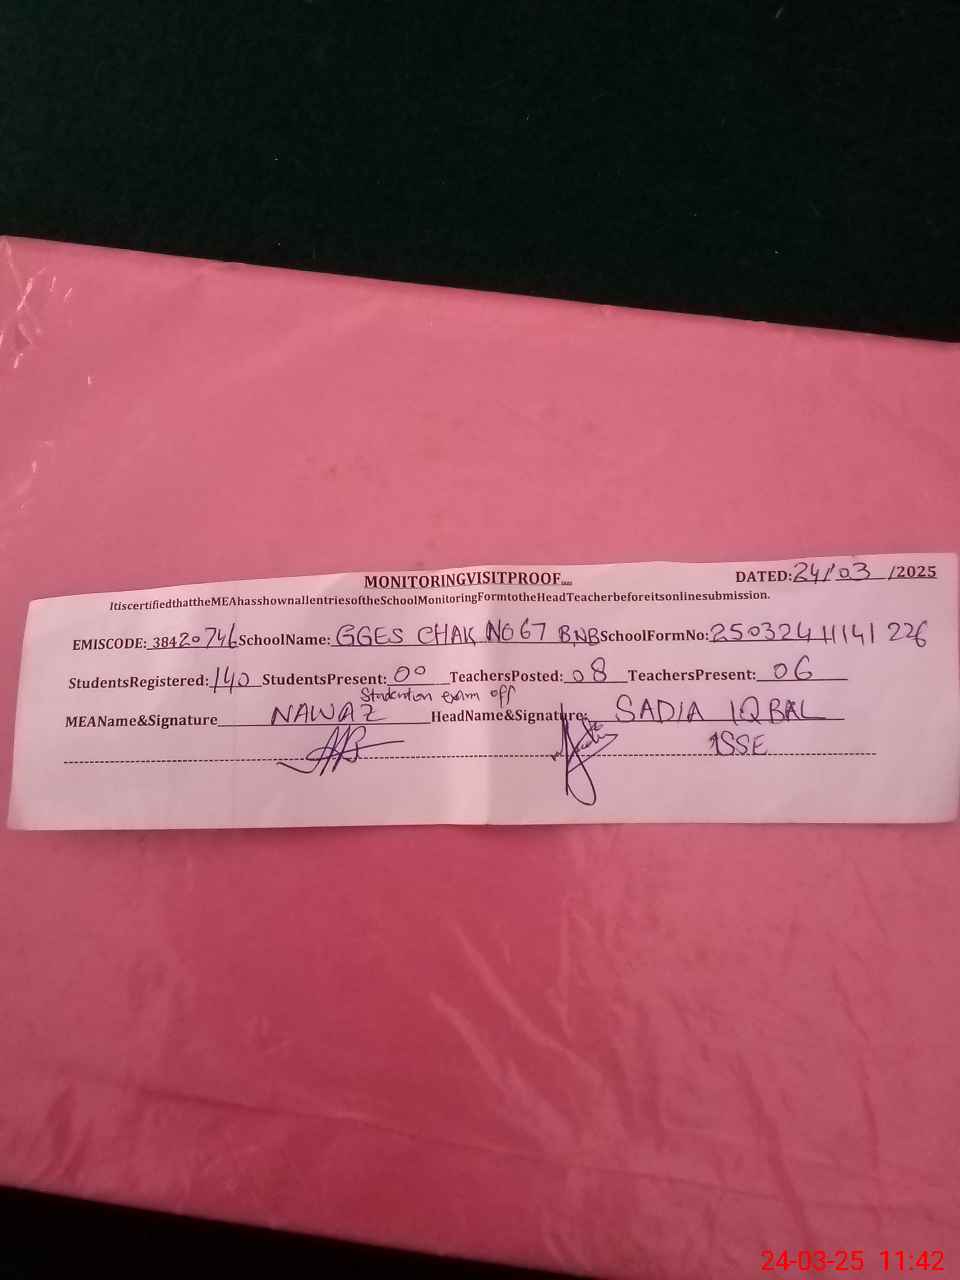 MONITORINGVISITPROOF
DATED: 24/03/2025
ItiscertifiedthattheMEAhasshownallentriesoftheSchoolMonitoringFormtotheHeadTeacherbeforeitsonlinesubmission.
EMISCODE: 38420746 SchoolName: GGES CHAK NO 67 BNB SchoolFormNo: 250324 11141 226
StudentsRegistered: 140 StudentsPresent: 00 TeachersPosted: 08 TeachersPresent: 06
exam off
MEAName&Signature NAWAZ HeadName&Signature: SADIA IQBAL
SSE
24-03-25 11:42